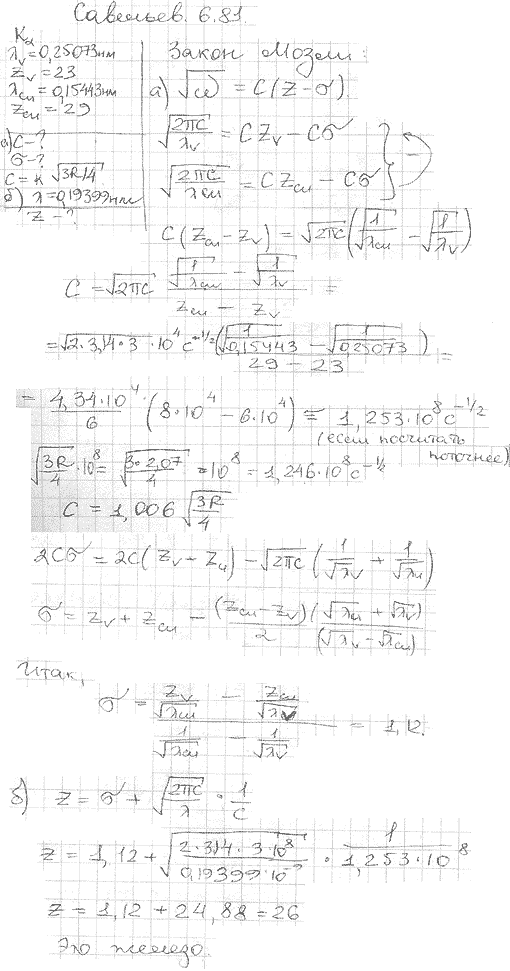 Савельев. 6.81.
Kα
λv = 0,25073 нм
Zv = 23
λcu = 0,15443 нм
Zcu = 29
а) C - ?
σ - ?
C = K √(3R/4)
б) λ = 0,19399 нм
Z - ?
Закон Мозли:
а) √ω = C(Z-σ)
√(2πc/λv) = CZv - Cσ
√(2πc/λcu) = CZcu - Cσ
C(Zcu - Zv) = √(2πc) (√(1/λcu) - √(1/λv))
C = √(2πc) (√(1/λcu) - √(1/λv)) / (Zcu - Zv) =
= √(2·3,14·3) · 10⁴ c⁻¹/² (√(1/0,15443) - √(1/0,25073)) / (29 - 23) =
= 4,34·10⁴/6 · (8·10⁴ - 6·10⁴) = 1,253·10⁸ c⁻¹/²
(если посчитать
поточнее)
√(3R/4) · 10⁸ = √(3·2,07/4) · 10⁸ = 1,246·10⁸ c⁻¹/²
C = 1,006 √(3R/4)
2Cσ = 2C(Zv - Zu) - √(2πc) (1/√λv + 1/√λu)
σ = Zv + Zcu - (Zcu - Zv)/2 (√λu + √λv)/(√λv - √λcu)
Итак,
σ = (Zv/√λcu - Zcu/√λv) / (1/√λcu - 1/√λv) = 1,12.
б) Z = σ + √(2πc/λ) · 1/C
Z = 1,12 + √(2·3,14·3·10⁸ / 0,19399·10⁻⁹) · 1/1,253·10⁸
Z = 1,12 + 24,88 = 26
Это железо.